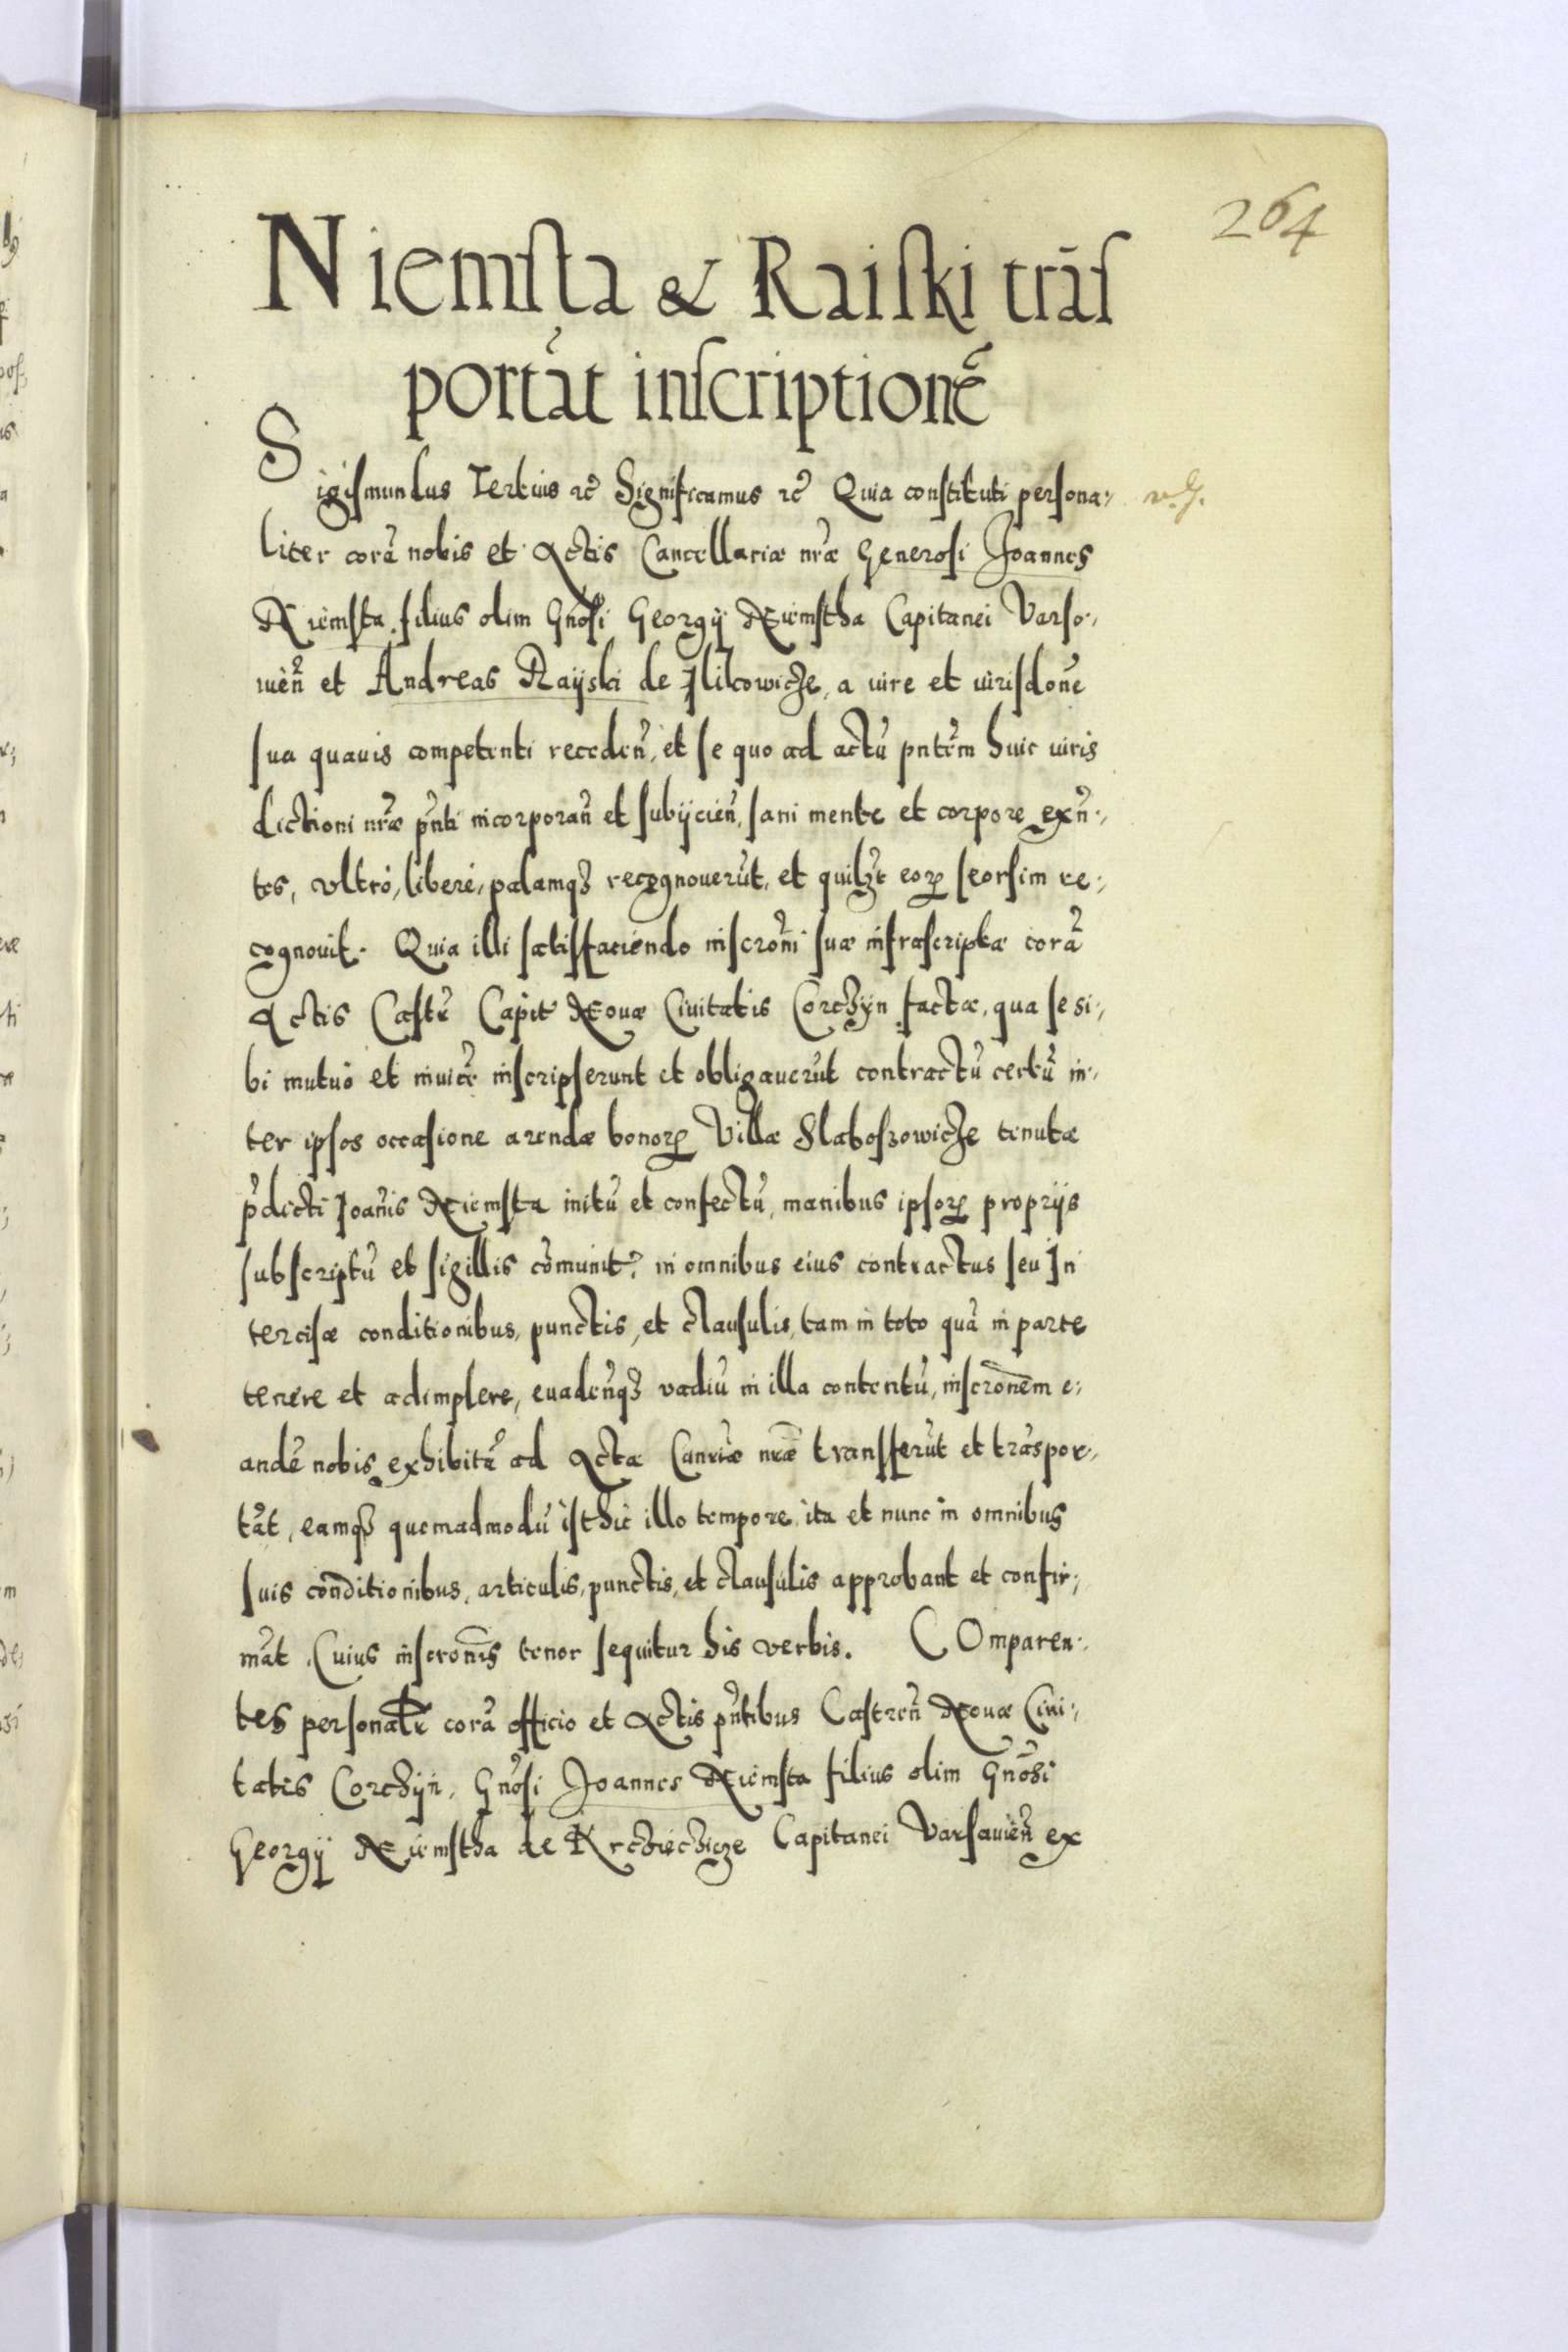 264
Niemsta & Raiski trãs
portãt inscriptionẽ
Sigismundus Tertius rc̃ Significamus rc̃ Quia constituti persona:
liter corã nobis et Actis Cancellariæ nr̃æ Generosi Joannes
Niemsta filius olim Gñosi Georgij Niemstha Capitanei Varso:
uień et Andreas Raijski de Ilikowicze, a iure et iurisdoñe
sua quauis competenti recedeñ, et se quo ad actũ pñtem huic iuris
dictioni nr̃æ pñti incorporañ et subijcieñ, sani mente et corpore exñ:
tes, vltró, liberé, palamqȝ recognouerũt, et quilȝt eoꝝ seorsim re:
cognouit. Quia illi satisfaciendo inscrõni suæ infrascriptæ corã
Actis Castr̃ Capit Nouæ Ciuitatis Corchÿn factæ, qua se si:
bi mutuó et inuicẽ inscripserunt et obligauerũt contractũ certũ in:
ter ipsos occasione arendæ bonoꝝ Villæ Slaboszowicze tenutæ
p̃dicti Joañis Niemsta initũ et confectũ, manibus ipsoꝝ proprijs
subscriptũ et sigillis cõmunit̃, in omnibus eius contractus seu In
tercisæ conditionibus, punctis, et clausulis, tam in toto quã in parte
tenere et adimplere, euadeñqȝ vadiũ in illa contentũ, inscrõnem e:
andẽ nobis exhibitã ad Acta Canriæ nr̃æ transferũt et trãspor:
tãt, eamqȝ quemadmodũ isthic illo tempore, ita et nunc in omnibus
suis conditionibus, articulis, punctis, et clausulis approbant et confir:
mãt. Cuius inscrõnis tenor sequitur his verbis. COmparen:
tes personalr̃ corã officio et Actis pñtibus Castreñ Nouæ Ciui:
tatis Corchÿn, Gñosi Joannes Niemsta filius olim Gñosi
Georgij Niemstha de Krchiechicze Capitanei Varsauień ex